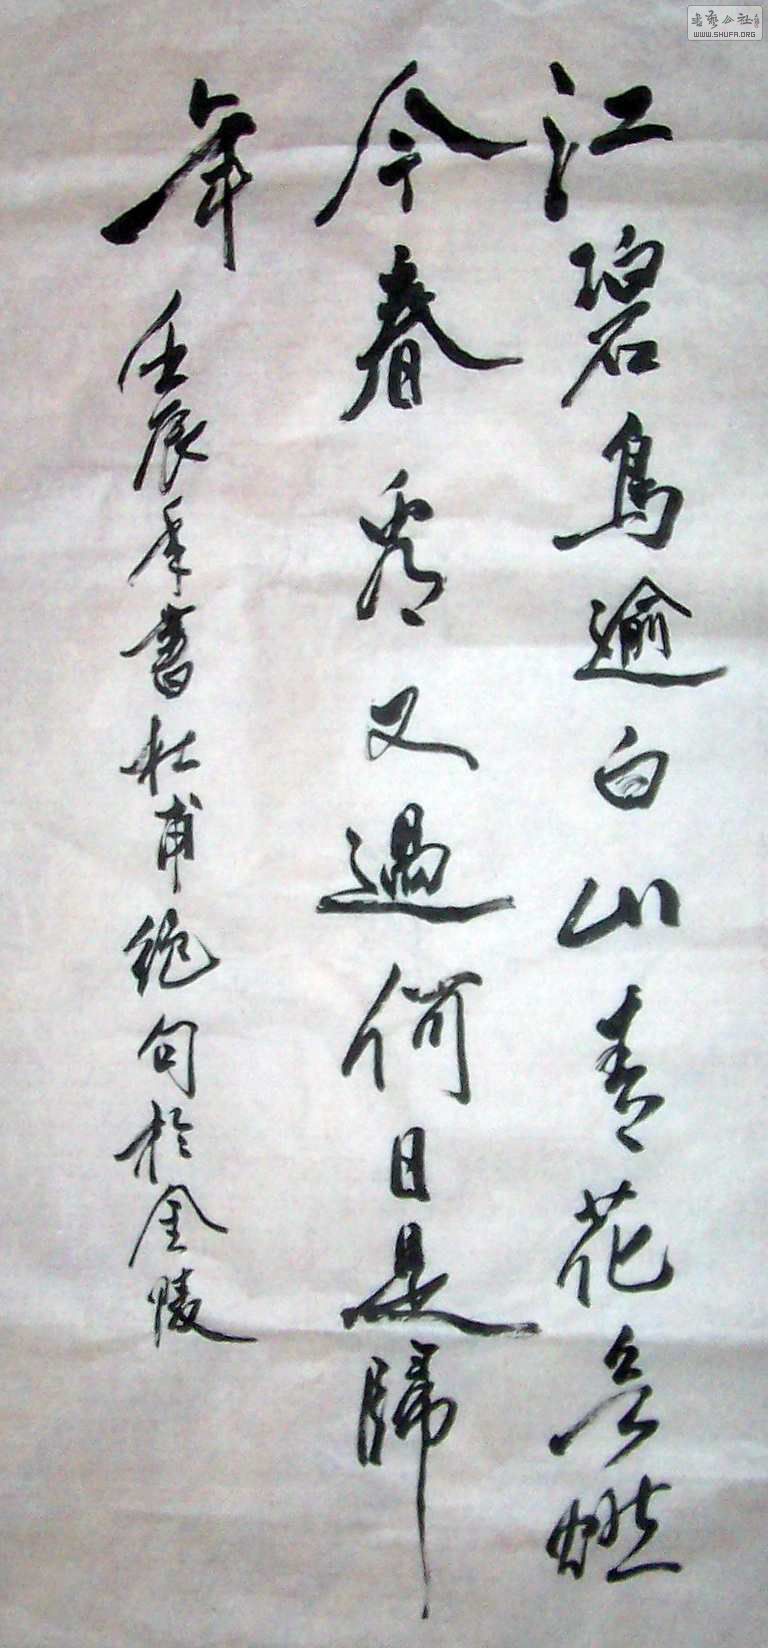 江碧鸟逾白山青花欲燃
今春看又過何日是歸
年
壬辰年書杜甫絕句於金陵
WWW.SHUFA.ORG